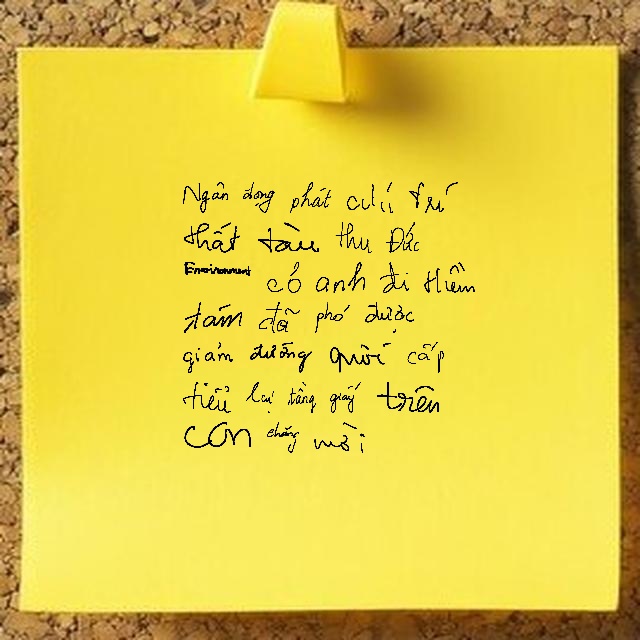 Ngân dong phát cứu trú
thất tàu thu Đắc
Environment có anh đi tiềm
tám đã phó được
giám đường quới cấp
tiểu lại tầng giấy trên
con chẳng mời